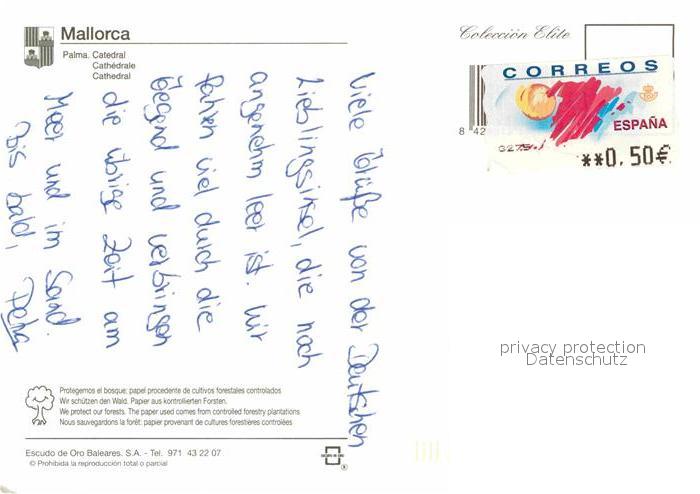 Mallorca
Palma. Catedral
Cathédrale
Cathedral
Viele Grüße von der Deutschen
Lieblingsinsel, die noch
angenehm leer ist. Wir
fahren viel durch die
Gegend und verbringen
die übrige Zeit am
Meer und im Sand.
Bis bald,
Protegemos el bosque; papel procedente de cultivos forestales controlados
Wir schützen den Wald. Papier aus kontrollierten Forsten.
We protect our forests. The paper used comes from controlled forestry plantations
Nous sauvegardons la forêt: papier provenant de cultures forestières contrôlées
Escudo de Oro Baleares. S.A. - Tel. 971 43 22 07
© Prohibida la reproducción total o parcial
Colección Elite
CORREOS
ESPAÑA
8 42
**0,50€
privacy protection
Datenschutz